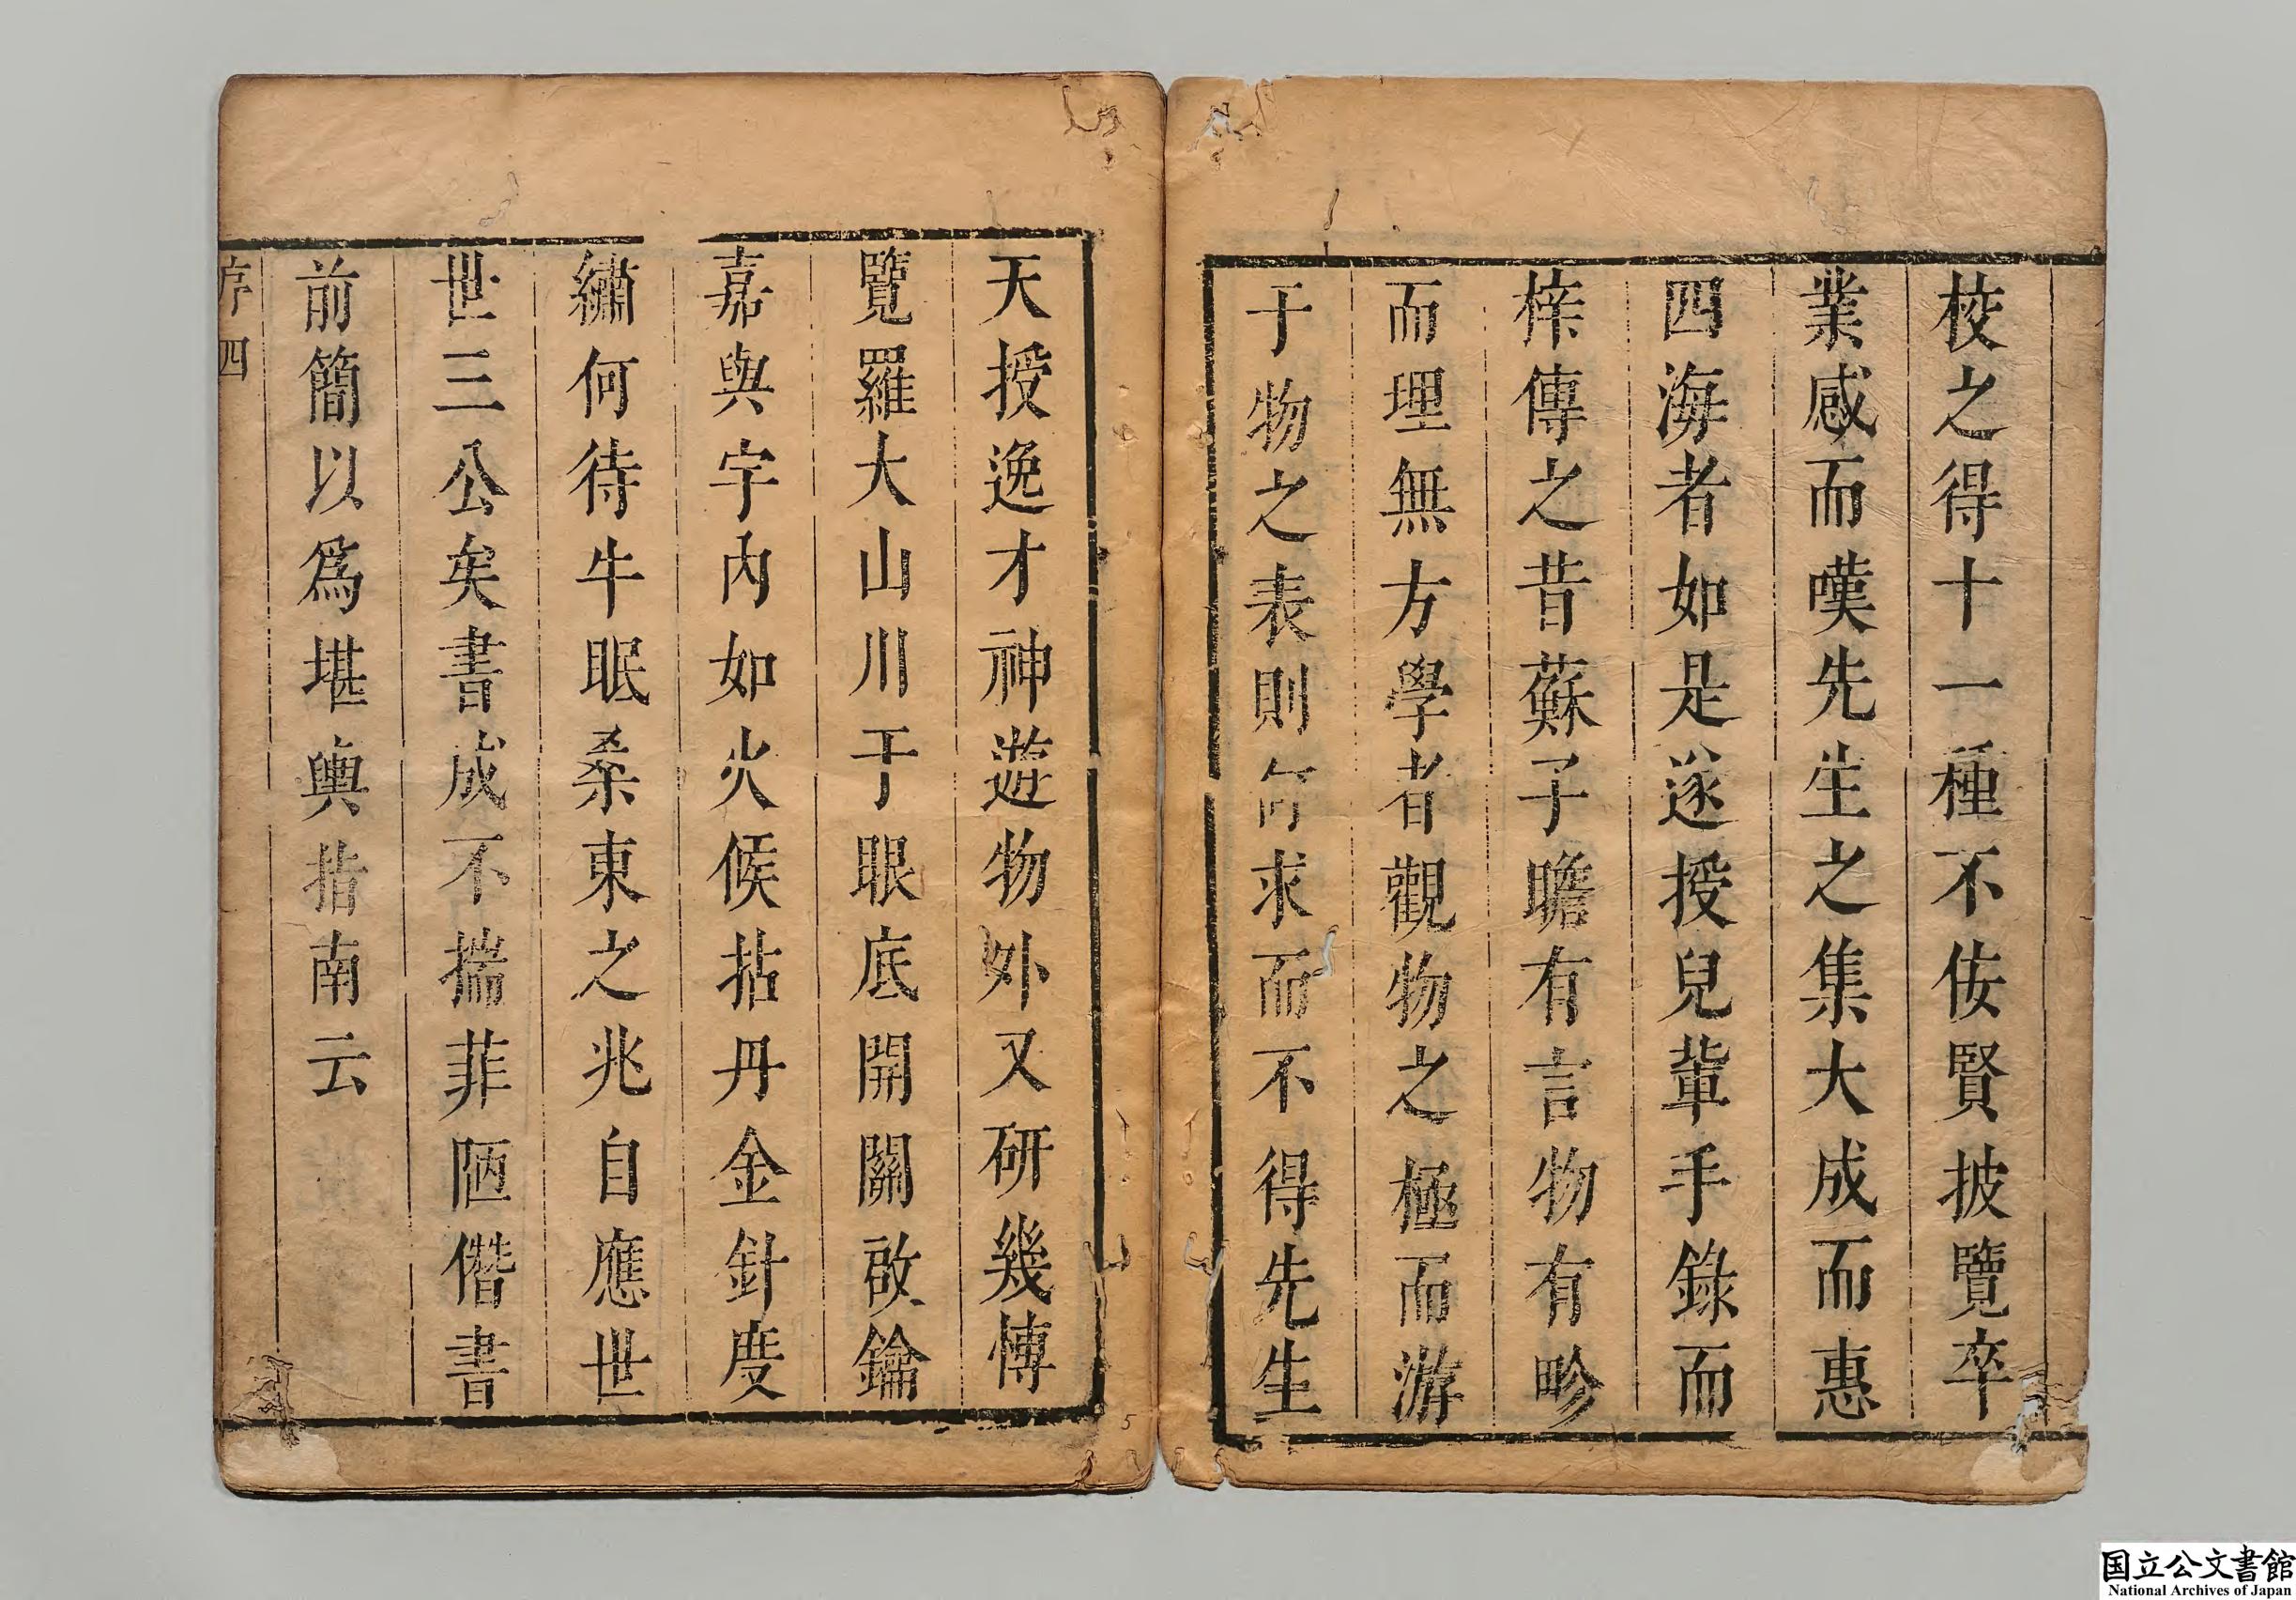 校之得十一種不佞賢披覽卒
業感而嘆先生之集大成而惠
四海者如是遂授兒輩手錄而
梓傳之昔蘇子瞻有言物有畛
而理無方學者觀物之極而游
于物之表則何求而不得先生
天授逸才神遊物外又研幾博
覽羅大山川于眼底開關啟鑰
嘉與宇內如火候拈丹金針度
繡何待牛眠桑東之兆自應世
世三公矣書成不揣菲陋僭書
前簡以爲堪輿指南云
序 四
5
国立公文書館
National Archives of Japan